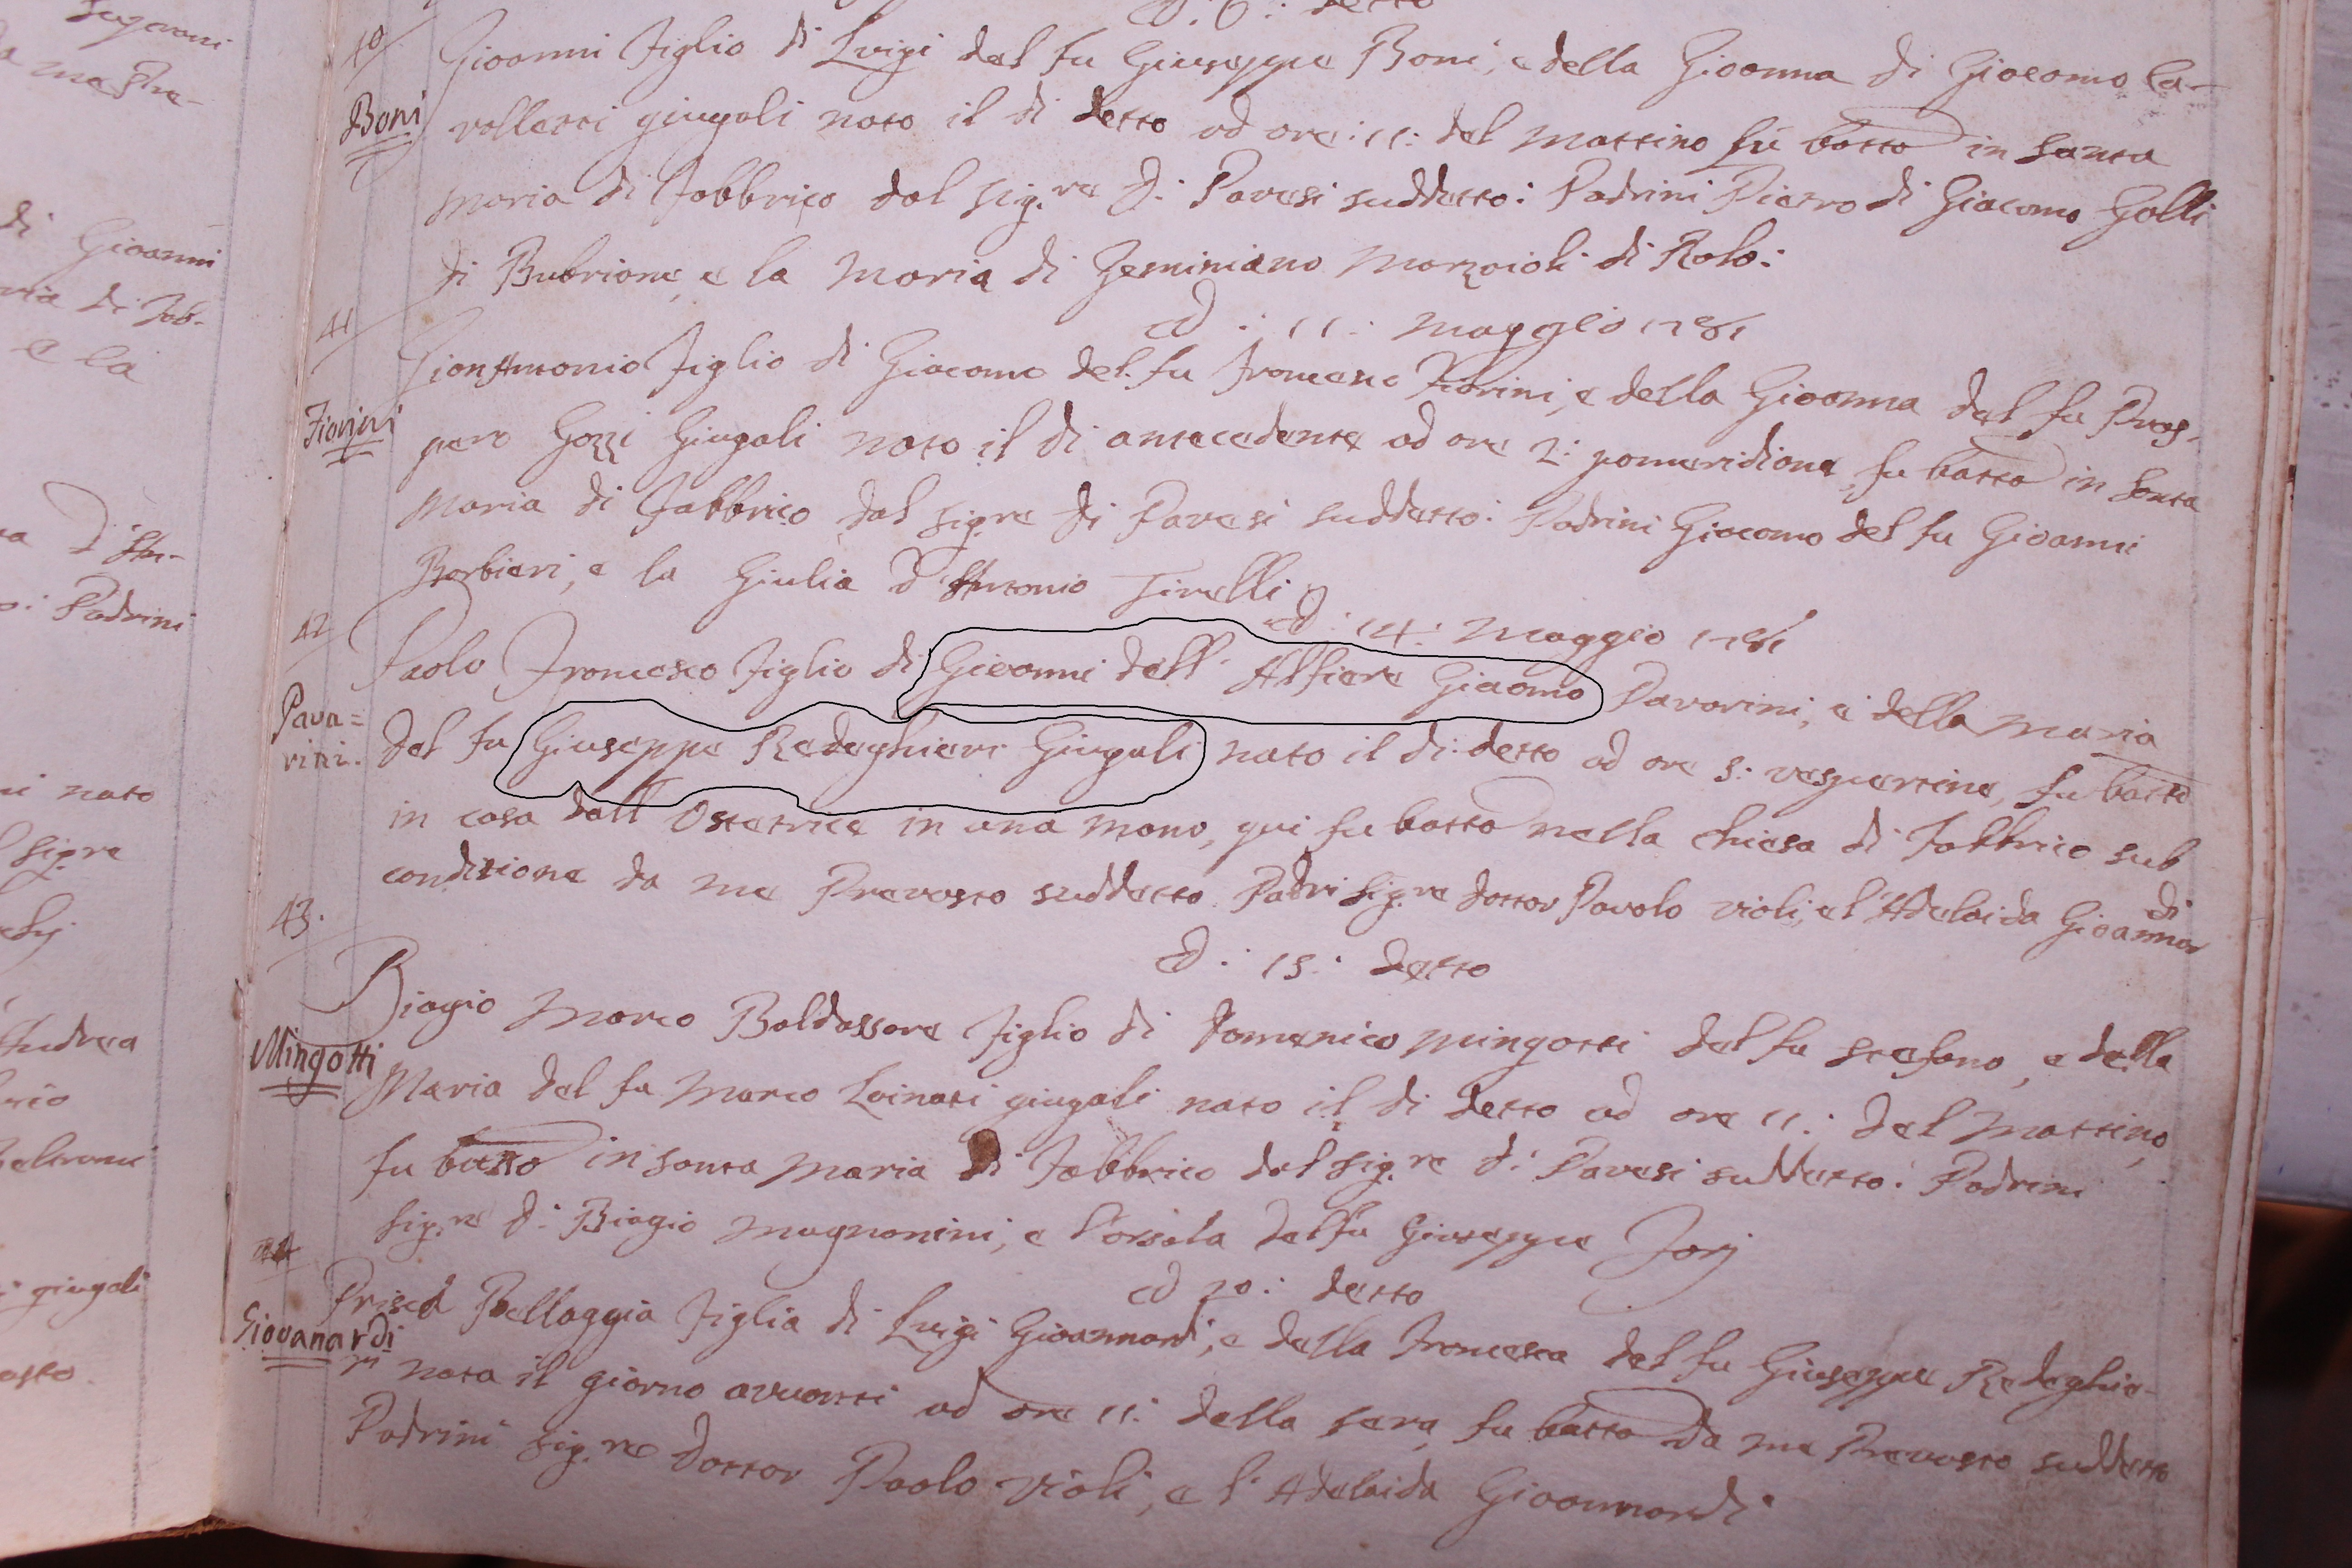 Sugaroni
a maestra-
di Giovanni
ria di Fab-
e la
D'An-
Padrini
ni nato
Sigre
Andrea
rico
Beltrami
giugali
osto.
: 6 : detto
40
Boni
Giovanni figlio di Luigi del fu Giuseppe Boni, e della Giovanna di Giacomo Ca-
volletti giugali nato il di detto ad ore : 11 : del mattino fù batto in Santa
Maria di Fabbrico dal Sig.re D: Pavesi suddetto : Padrini Pietro di Giacomo Golli
di Bubrione, e la Maria di Geminiano Marzaioli di Rolo :
41
Fiorini
Ad : 11 : Maggio 1781
GianAntonio figlio di Giacomo del fu Francesco Fiorini, e della Giovanna del fu Pros-
pero Gozzi Giugali nato il di antecedente ad ore 2 : pomeridiane, fu batto in Santa
Maria di Fabbrico dal Sigre D: Pavesi suddetto : Padrini Giacomo del fu Giovanni
Barbieri, e la Giulia d'Antonio Tirelli
42
Pava=
rini.
Ad : 14 : Maggio 1781
Paolo Francesco figlio di Giovanni dell' Alfiere Giaomo Pavarini, e della Maria
del fu Giuseppe Redeghieri Giugali nato il di : detto ad ore 5 : vespertine, fu batto
in casa dall' Ostetrice in una mano, qui fu batto nella Chiesa di Fabbrico sub
conditione da me Prevosto suddetto Padri Sig.re Dottor Pavolo Violi, e l'Adelaida Gioannar
di
43.
Mingotti
Ad : 15 : detto
Biagio Marco Baldassare figlio di Domenico Mingotti del fu Stefano, e della
Maria del fu Marco Lainati giugali nato il di detto ad ore 11 : del Mattino,
fu batto in Santa Maria di Fabbrico dal Sig.re D: Pavesi suddetto : Padrini
Sig.re D: Biagio Magnanini, e l'Orsola del fu Giuseppe Forj
44
Giovanardi
Ad 20 : detto
Prisca Pellaggia figlia di Luigi Gioannardi, e della Francesca del fu Giuseppe Redeghie-
ri nata il giorno avvanti ad ore 11 : della sera, fu batto da me Prevosto suddetto
Padrini Sig.re Dottor Paolo Violi, e l'Adelaida Gioannardi